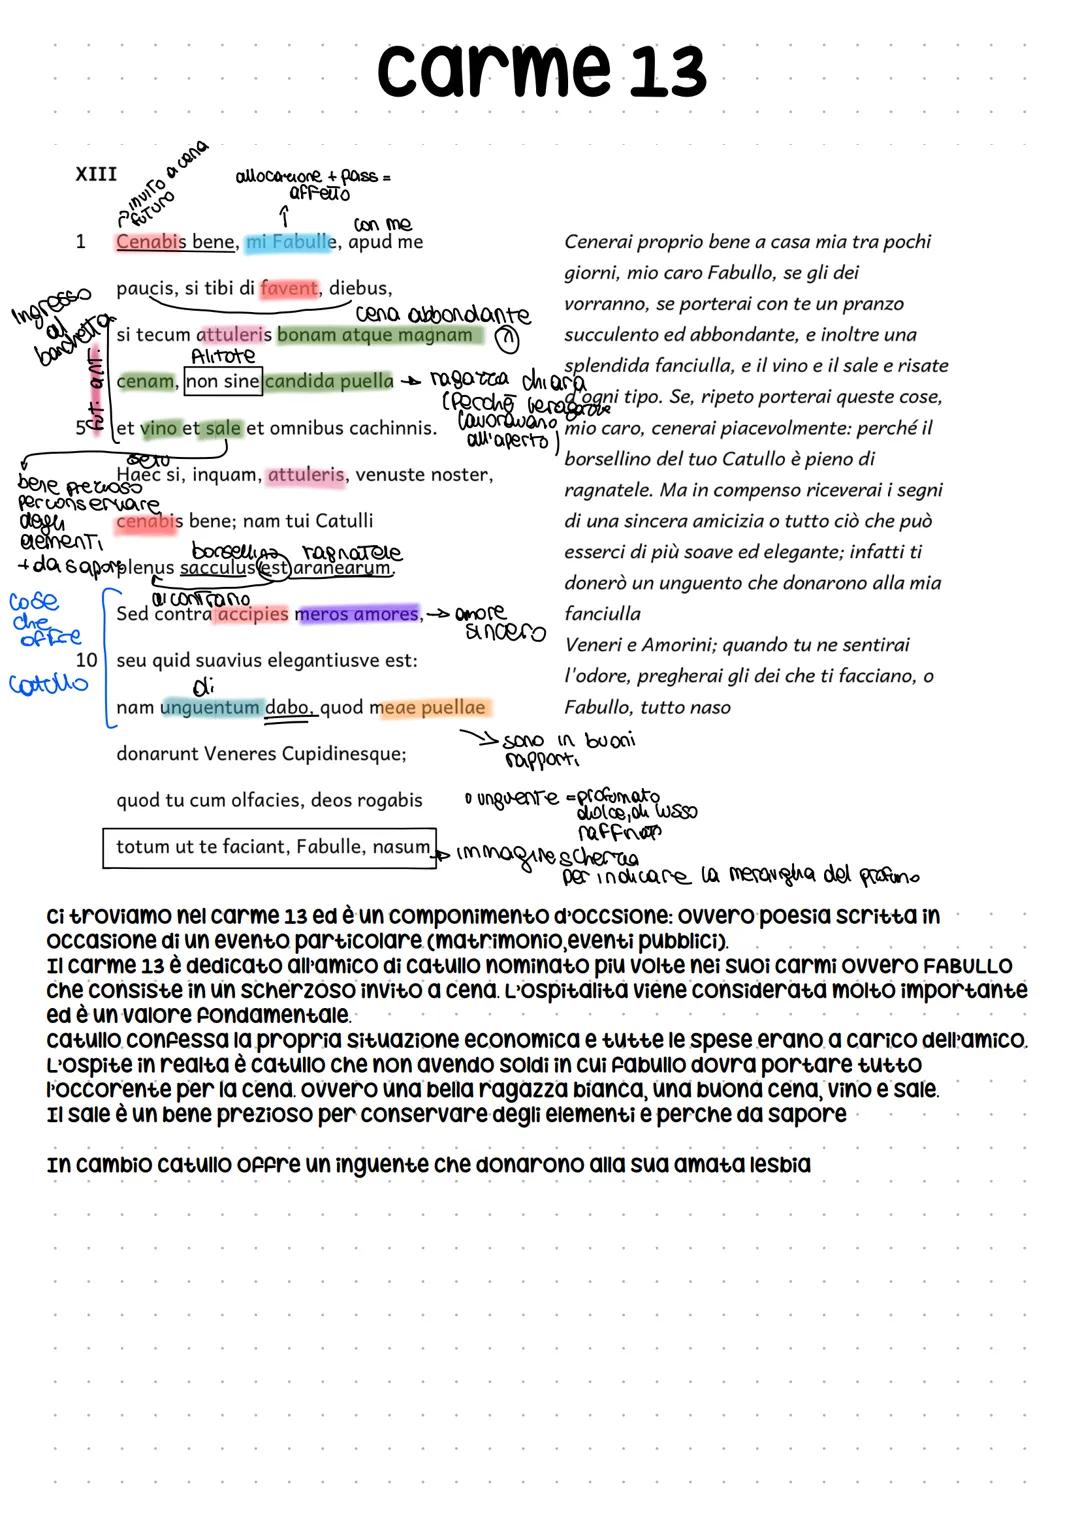 carme 13
XIII
invito a cena
futuro
allocazione + pass =
affetto
con me
1 Cenabis bene, mi Fabulle, apud me
paucis, si tibi di favent, diebus,
Ingresso
al
banchetto
cena abbondante
si tecum attuleris bonam atque magnam
Alitote
fut. ant.
cenam, non sine candida puella → ragazza chiara
(Perchè le ragazze
lavoravano
all'aperto)
5 et vino et sale et omnibus cachinnis.
Haec si, inquam, attuleris, venuste noster,
bene prezioso
per conservare
degli
elementi
+ da sapore
cenabis bene; nam tui Catulli
borsellino ragnatele
plenus sacculus est aranearum.
al contrario
Sed contra accipies meros amores, → amore
sincero
cose
che
offre
catullo
10 seu quid suavius elegantiusve est:
di
nam unguentum dabo, quod meae puellae
sono in buoni
rapporti
donarunt Veneres Cupidinesque;
quod tu cum olfacies, deos rogabis
unguente = profumato
dolce, di lusso
raffinato
totum ut te faciant, Fabulle, nasum
immagine scherza
per indicare la meraviglia del profumo
Cenerai proprio bene a casa mia tra pochi
giorni, mio caro Fabullo, se gli dei
vorranno, se porterai con te un pranzo
succulento ed abbondante, e inoltre una
splendida fanciulla, e il vino e il sale e risate
d'ogni tipo. Se, ripeto porterai queste cose,
mio caro, cenerai piacevolmente: perché il
borsellino del tuo Catullo è pieno di
ragnatele. Ma in compenso riceverai i segni
di una sincera amicizia o tutto ciò che può
esserci di più soave ed elegante; infatti ti
donerò un unguento che donarono alla mia
fanciulla
Veneri e Amorini; quando tu ne sentirai
l'odore, pregherai gli dei che ti facciano, o
Fabullo, tutto naso
ci troviamo nel carme 13 ed è un componimento d'occsione: ovvero poesia scritta in
occasione di un evento particolare (matrimonio,eventi pubblici).
Il carme 13 è dedicato all'amico di catullo nominato piu volte nei suoi carmi ovvero FABULLO
che consiste in un scherzoso invito a cena. L'ospitalità viene considerata molto importante
ed è un valore fondamentale.
catullo confessa la propria situazione economica e tutte le spese erano a carico dell'amico.
L'ospite in realtà è catullo che non avendo soldi in cui fabullo dovra portare tutto
l'occorente per la cena. ovvero una bella ragazza bianca, una buona cena, vino e sale.
Il sale è un bene prezioso per conservare degli elementi e perche da sapore
In cambio catullo offre un inguente che donarono alla sua amata lesbia